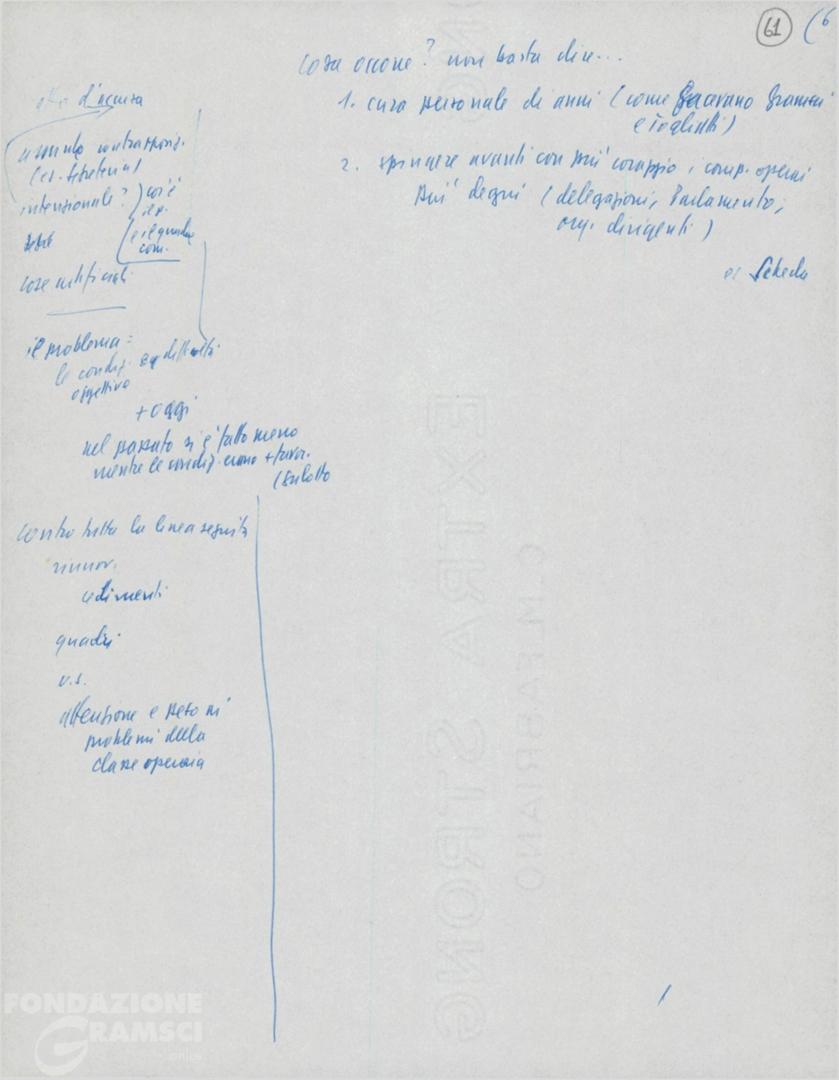 61
(6
Cosa occorre? non basta dire...
1. cura personale di anni (come facevano Gramsci
e Togliatti)
2. spingere avanti con più coraggio i comp. operai
più degni (delegazioni, Parlamento,
org. dirigenti)
es Scheda
atto d'accusa
contrapposiz.
(es. Segreteria)
intenzionale? cos'è
com.
cose artificiali
il problema:
le condiz.
oggettive
+ oggi
nel passato si è fatto meno
mentre le condiz. erano + favor.
contro tutta la linea seguita
rinnov.
cedimenti
quadri
v.s.
attenzione e peso ai
problemi della
classe operaia
EXTRA STRONG
C.M. FABRIANO
FONDAZIONE
GRAMSCI
onlus